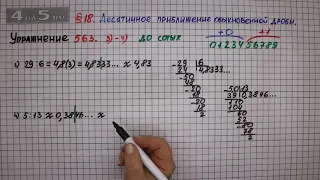 4.0.5.ru
§18. Десятичное приближение обыкновенной дроби.
Упражнение 563. 3)-4) до сотых
+0 +1
0 1 2 3 4 5 6 7 8 9
3) 29:6=4,8(3)=4,8333... ≈ 4,83
-29 |6
24 |4,8333...
-50
48
-20
18
-20
18
2
4) 5:13≈0,3846... ≈
-50 |13
39 |0,3846...
-110
104
-60
52
-80
78
2